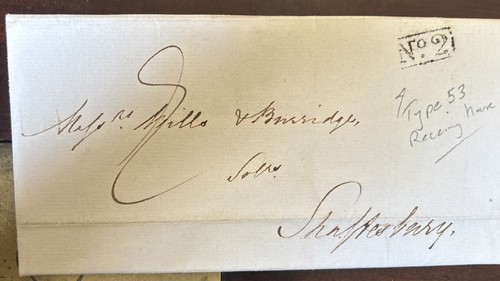 No. 2
Type 53
Receiving House
Messrs. Mills & Burridge,
Solrs.
Shaftesbury.